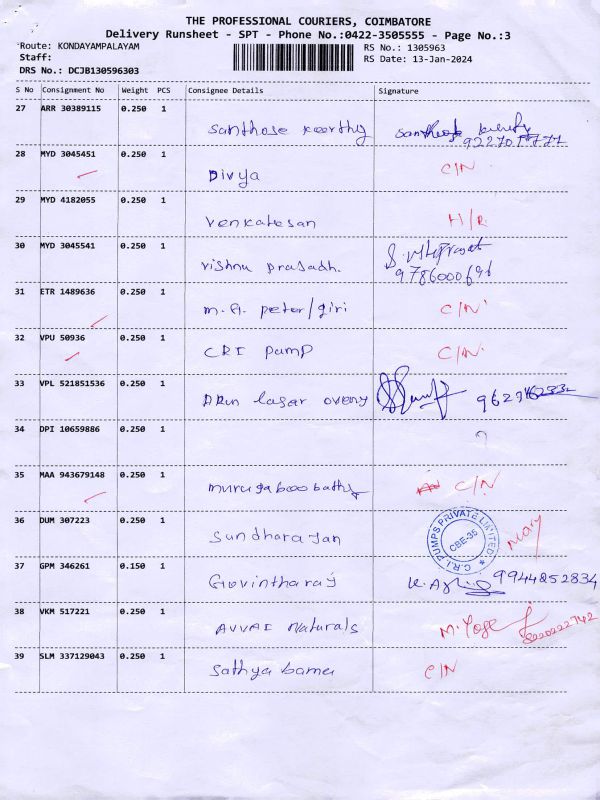 THE PROFESSIONAL COURIERS, COIMBATORE
Delivery Runsheet - SPT - Phone No.:0422-3505555 - Page No.:3
Route: KONDAYAMPALAYAM RS No.: 1305963
Staff: RS Date: 13-Jan-2024
DRS No.: DCJB130596303
S No Consignment No Weight PCS Consignee Details Signature
27 ARR 30389115 0.250 1
Santhose keerthy
28 MYD 3045451 0.250 1
Divya C/N
29 MYD 4182055 0.250 1
Venkatesan H/R
30 MYD 3045541 0.250 1
Vishnu prasadh.
31 ETR 1489636 0.250 1
m.A. peter/giri C/N
32 VPU 50936 0.250 1
CRI pump C/N
33 VPL 521851536 0.250 1
lasar
34 DPI 10659886 0.250 1
35 MAA 943679148 0.250 1
C/N
36 DUM 307223 0.250 1
Sundhara Jan
C.R.I. PUMPS PRIVATE LIMITED
CBE-35
37 GPM 346261 0.150 1
Govintharaj 9944852834
38 VKM 517221 0.250 1
AVVAI Naturals
39 SLM 337129043 0.250 1
Sathya bama C/N